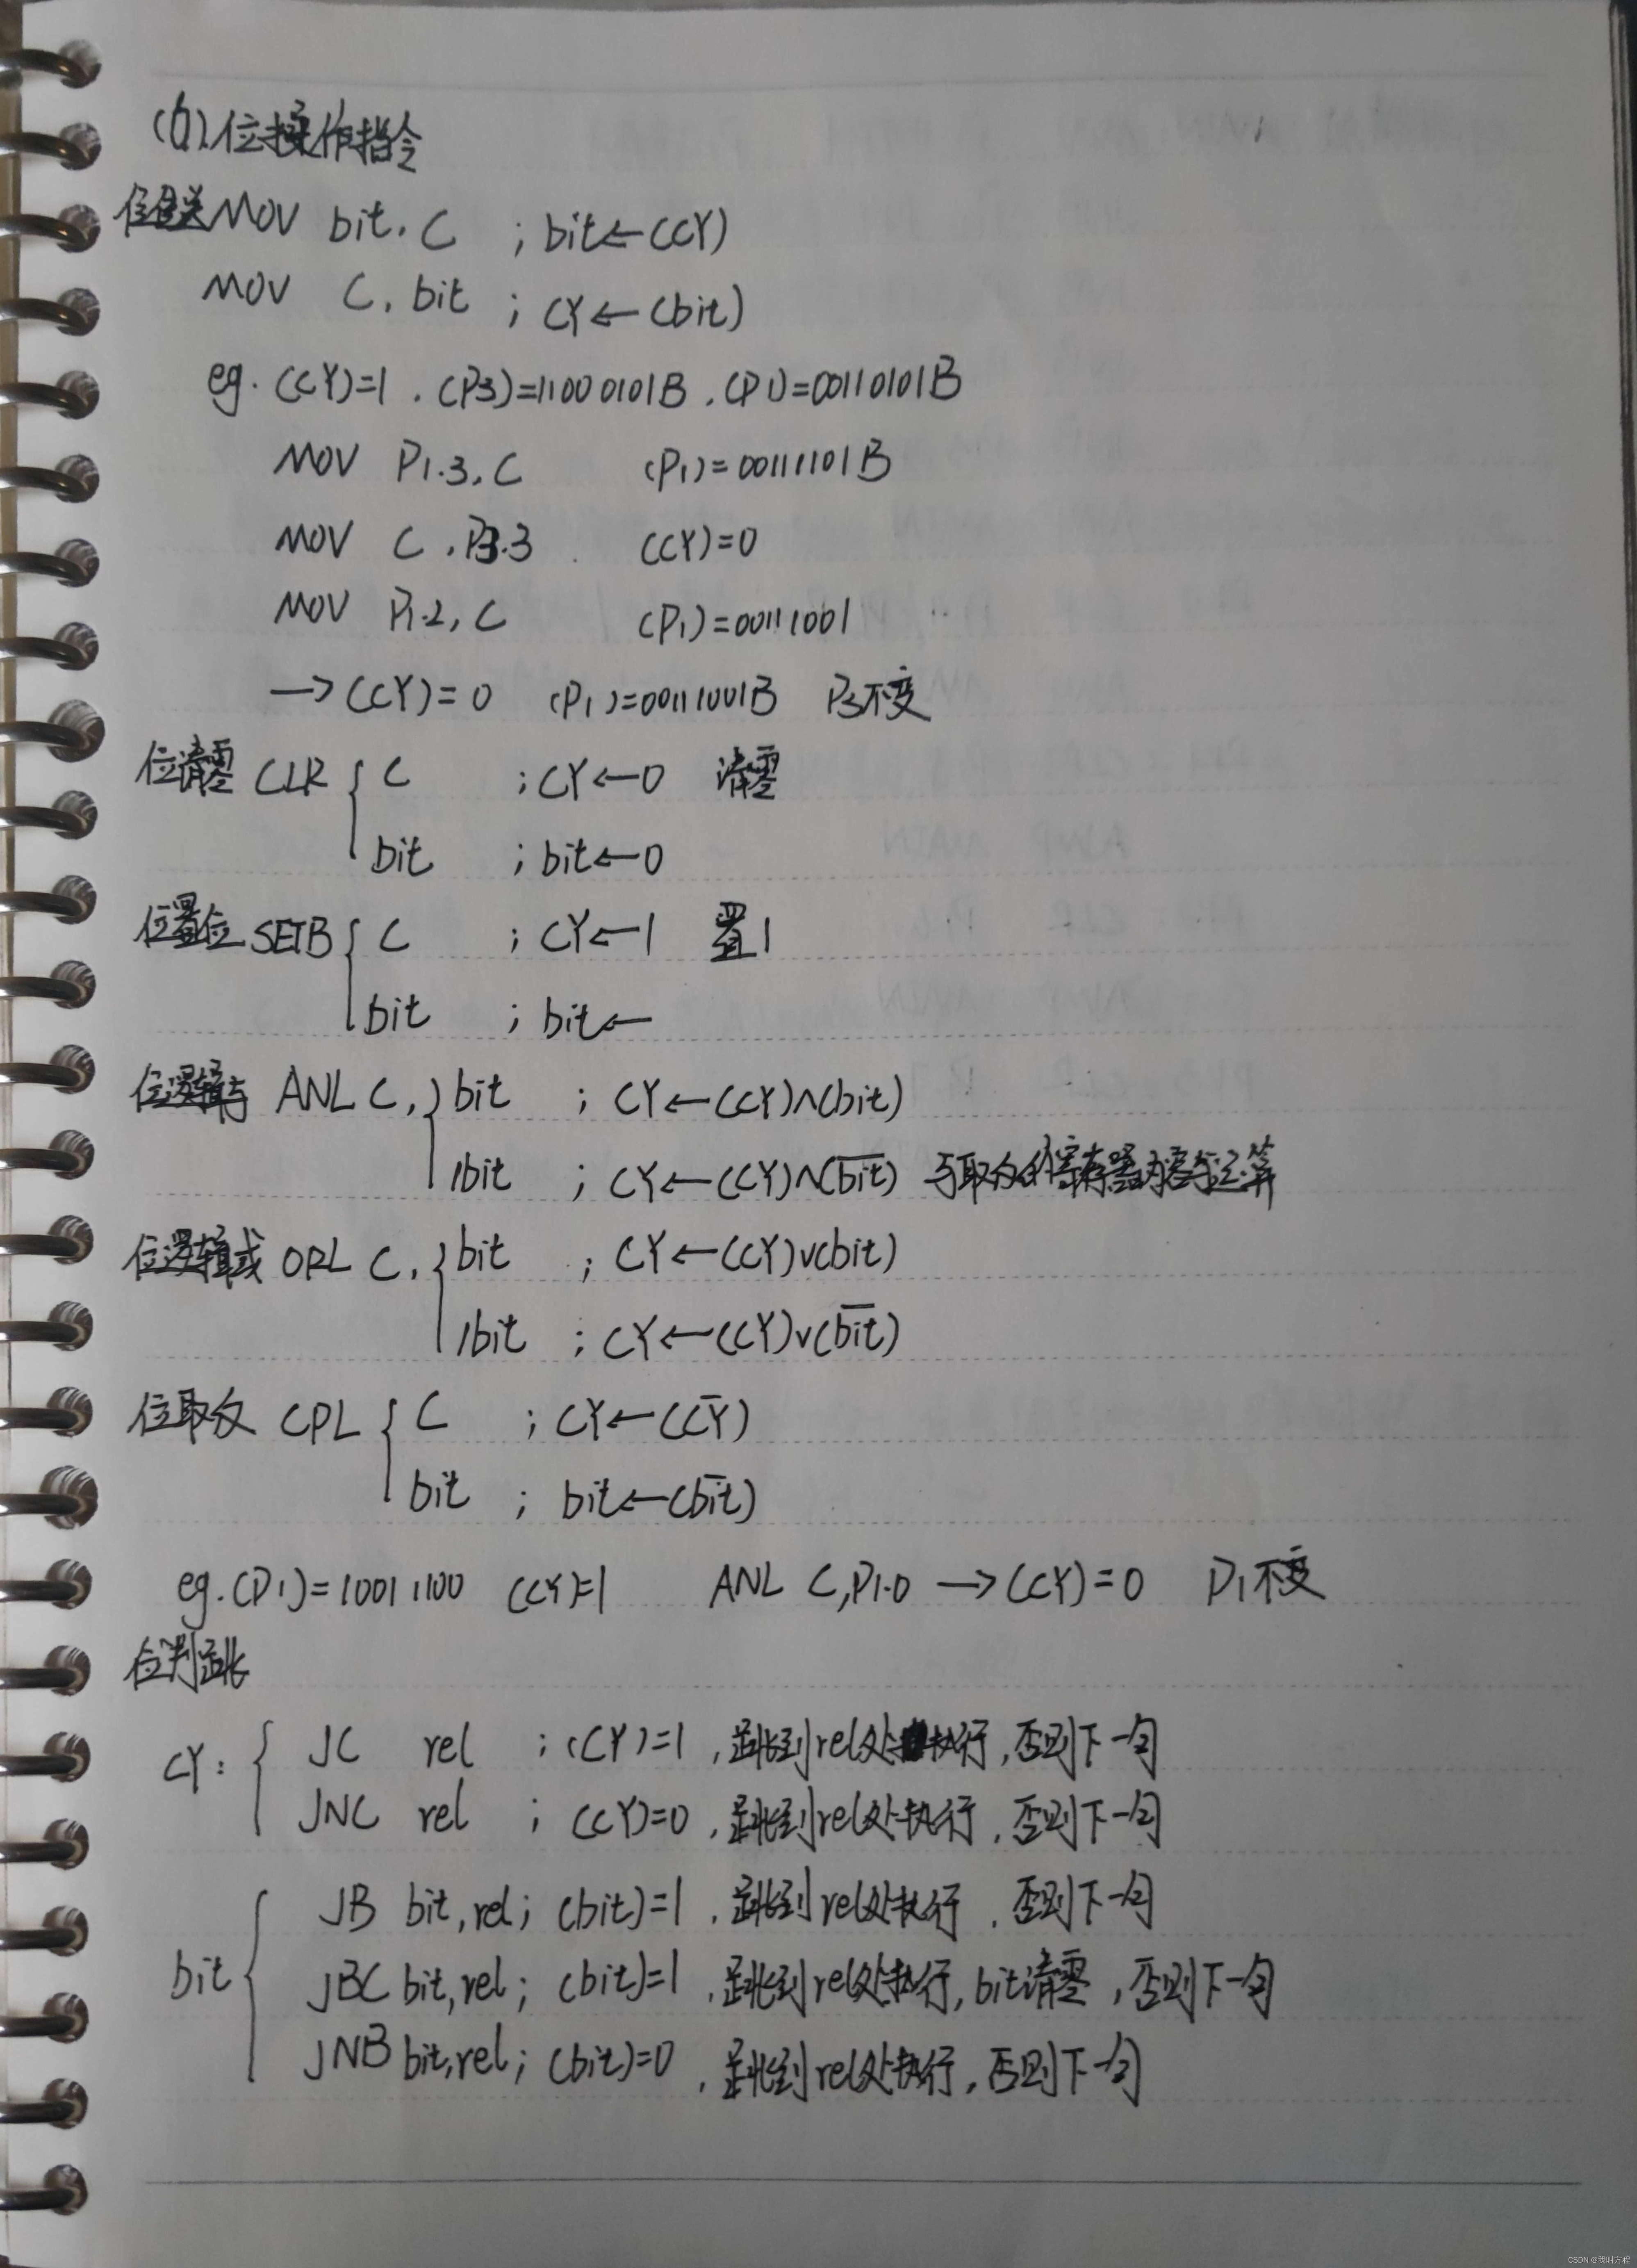 (6).位操作指令
位传送 MOV bit, C ; bit←(CY)
MOV C, bit ; CY←(bit)
eg. (CY)=1 , (P3)=11000101B , (P1)=00110101B
MOV P1.3, C (P1)=00111101B
MOV C, P3.3 (CY)=0
MOV P1.2, C (P1)=00111001
→(CY)=0 (P1)=00111001B P3不变
位清零 CLR { C ; CY←0 清零
bit ; bit←0
位置位 SETB { C ; CY←1 置1
bit ; bit←
位逻辑与 ANL C, { bit ; CY←(CY)∧(bit)
/bit ; CY←(CY)∧(b̅i̅t̅) 与取反的寄存器内容与运算
位逻辑或 ORL C, { bit ; CY←(CY)∨(bit)
/bit ; CY←(CY)∨(b̅i̅t̅)
位取反 CPL { C ; CY←(C̅Y̅)
bit ; bit←(b̅i̅t̅)
eg.(P1)=10011100 (CY)=1 ANL C,P1.0 →(CY)=0 P1不变
位判跳
CY: { JC rel ; (CY)=1 , 跳到rel处执行, 否则下一句
JNC rel ; (CY)=0 , 跳到rel处执行, 否则下一句
bit { JB bit,rel; (bit)=1 , 跳到rel处执行, 否则下一句
JBC bit,rel; (bit)=1 , 跳到rel处执行, bit清零, 否则下一句
JNB bit,rel; (bit)=0 , 跳到rel处执行, 否则下一句
CSDN @我叫方程